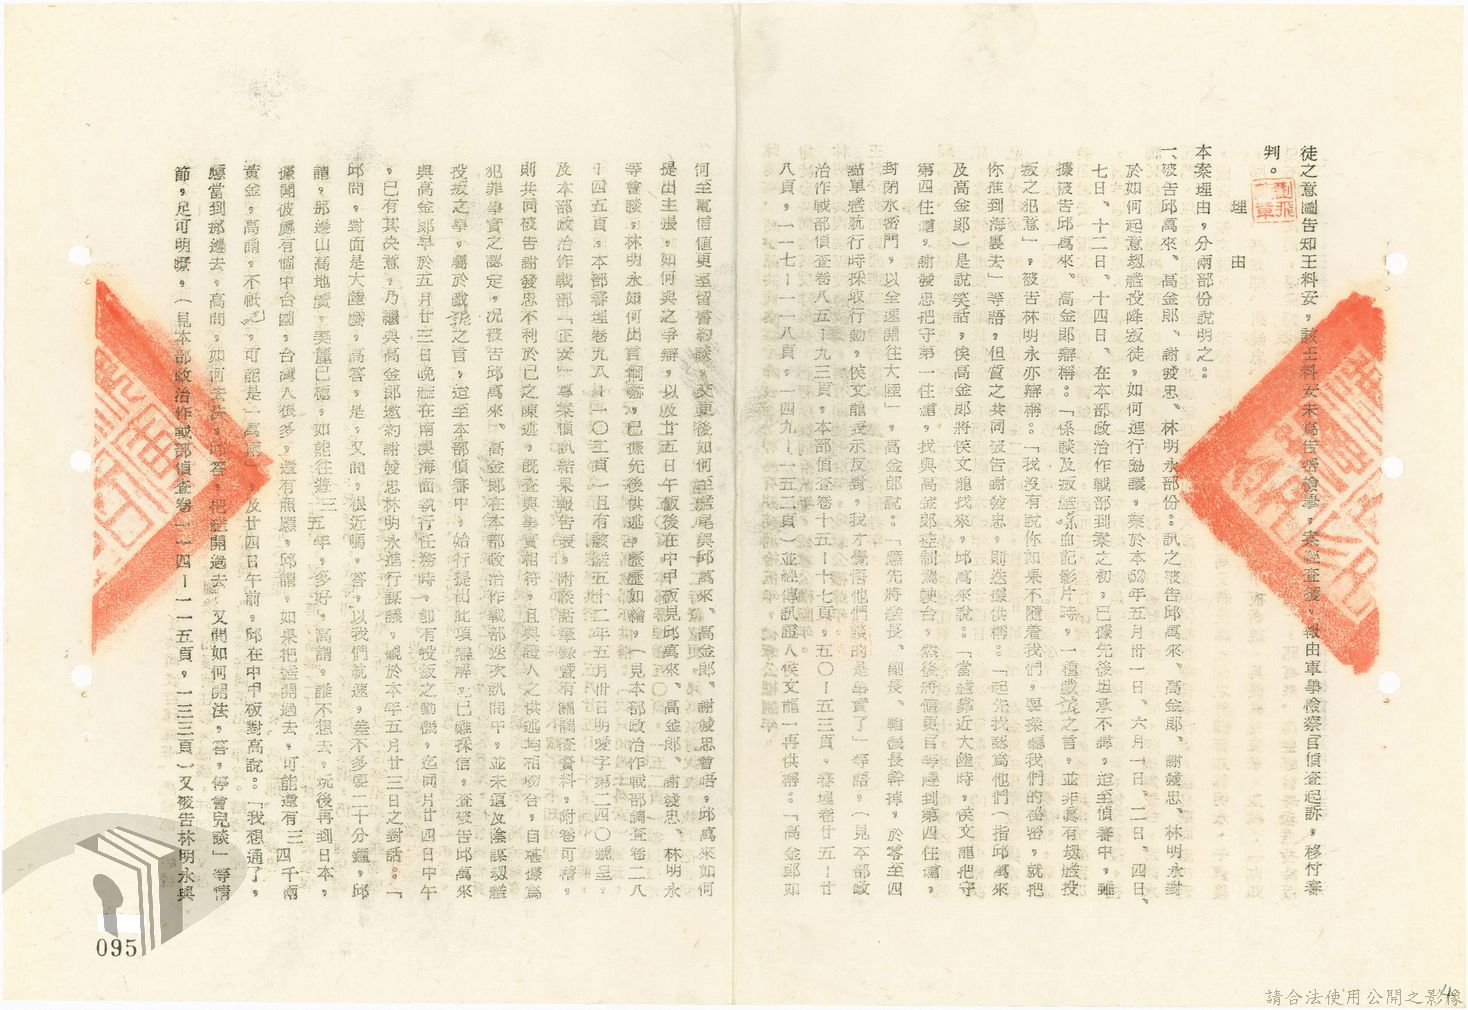 徒之意圖告知王料安，該王料安未為告密檢舉，案經查獲，報由軍事檢察官偵查起訴，移付審
判。
理由
本案理由，分兩部份說明之：
一、被告邱萬來、高金郎、謝發忠、林明永部份：訊之被告邱萬來、高金郎、謝發忠、林明永對
於如何起意劫艦投降叛徒，如何進行協議，業於本52年五月卅一日、六月一日、二日、四日、
七日、十二日、十四日、在本部政治作戰部到案之初，已據先後坦承不諱，迨至偵審中，雖
據被告邱萬來、高金郎辯稱：「係談及叛艦喋血記影片時，一種戲謔之言，並非真有劫艦投
叛之犯意」，被告林明永亦辯稱：「我沒有說你如果不隨着我們，要探聽我們的秘密，就把
你推到海裏去」等語，但質之共同被告謝發忠，則迭據供稱：「起先我認為他們（指邱萬來
及高金郎）是說笑話，俟高金郎將侯文龍找來，邱萬來說：「當艦靠近大陸時，侯文龍把守
第四住艙，謝發忠把守第一住艙，我與高金郎控制駕駛台，然後將值更官等趕到第四住艙，
封閉水密門，以全速開往大陸」，高金郎說：「應先將艦長、副長、輪機長幹掉，於零至四
點單艦航行時採取行動，侯文龍表示反對，我才覺悟他們談的是事實了」等語，（見本部政
治作戰部偵查卷八五－九三頁，本部偵查卷十五－十七頁，五〇－五三頁，審理卷廿五－廿
八頁，一一七－一一八頁，一四九－一五二頁）並經傳訊證人侯文龍一再供稱：「高金郎如
何至電信值更室留書約談，交更後如何至艦尾與邱萬來、高金郎、謝發忠會晤，邱萬來如何
提出主張，如何與之爭辯，以及廿五日午飯後在中甲板見邱萬來、高金郎、謝發忠、林明永
等會談，林明永如何出言恫嚇，已據先後供述，歷歷如繪，（見本部政治作戰部調查卷二八
－四五頁，本部審理卷九八－一〇三頁）且有該艦五十二年五月卅日明愛字第二四〇號呈，
及本部政治作戰部「正安」專案偵訊結果報告表，附談話筆錄暨有關調查資料，附卷可稽，
則共同被告謝發忠不利於己之陳述，既查與事實相符，且與證人之供述均相吻合，自堪據為
犯罪事實之認定，況被告邱萬來、高金郎在本部政治作戰部迭次訊問中，並未道及陰謀劫艦
投叛之舉，屬於戲謔之言，迨至本部偵審中，始行提出此項辯解，已難採信，查被告邱萬來
與高金郎早於五月廿三日晚艦在南澳海面執行任務時，即有投叛之動機，迄同月廿四日中午
，已有其決意，乃繼與高金郎邀約謝發忠林明永進行謀議，觀於本年五月廿三日之對話。「
邱問，對面是大陸麼，高答，是，又問，很近嗎，答，以我們航速，差不多要二十分鐘，邱
謂，那邊山高地廣，美麗已極，如能往遊三五年，多好，高謂，誰不想去，玩後再到日本，
據聞彼處有個中台國，台灣人很多，還有照應，邱謂，如果把艦開過去，可能還有三四千兩
黃金，高謂，不祇吧，可能是一萬兩」，及廿四日午前，邱在中甲板對高說：「我想通了，
應當到那邊去，高問，如何去法，邱答，把艦開過去，又問如何開法，答，停會兒談」等情
節，足可明瞭，（見本部政治作戰部偵查卷一一四－一一五頁，一三三頁）又被告林明永與
095
4
請合法使用公開之影像